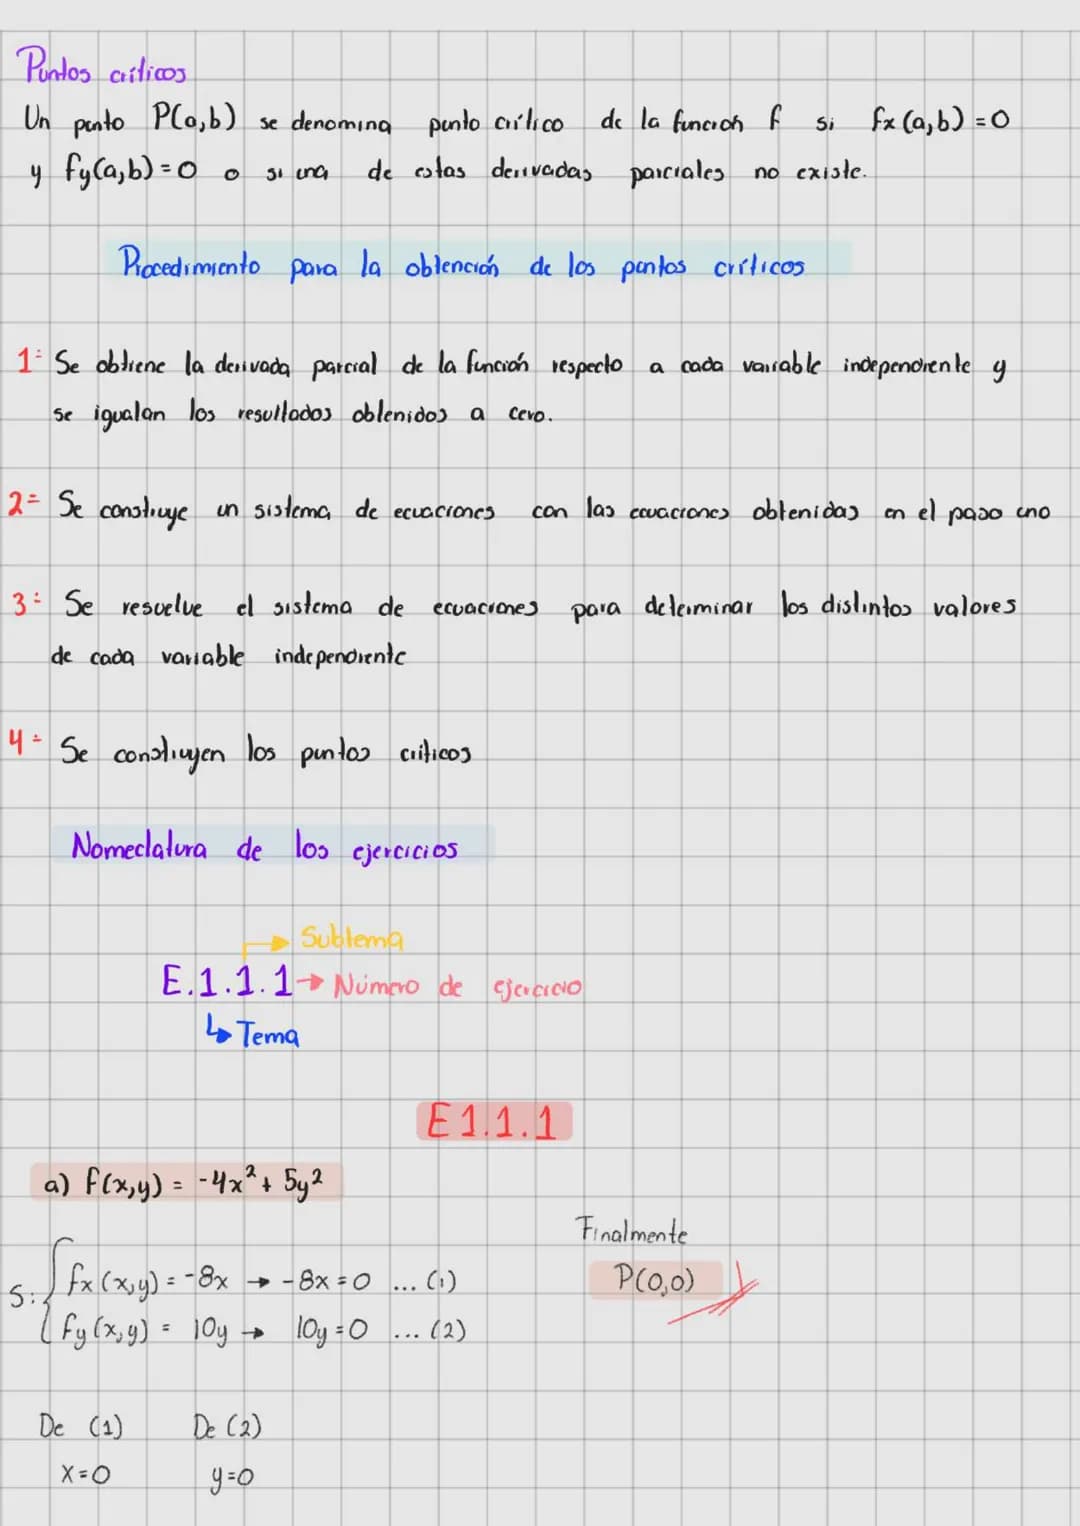 Puntos críticos
Un punto P(a,b) se denomina punto crítico de la función f si fx(a,b)=0
y fy(a,b)=0 o si una de estas derivadas parciales no existe.
Procedimiento para la obtención de los puntos críticos
1= Se obtiene la derivada parcial de la función respecto a cada variable independiente y
se igualan los resultados obtenidos a cero.
2= Se construye un sistema de ecuaciones con las ecuaciones obtenidas en el paso uno
3= Se resuelve el sistema de ecuaciones para determinar los distintos valores
de cada variable independiente
4= Se construyen los puntos críticos
Nomeclatura de los ejercicios
→ Subtema
E.1.1.1 → Número de ejercicio
↳ Tema
E1.1.1
a) f(x,y) = -4x² + 5y²
Finalmente
P(0,0)
S: { fx(x,y) = -8x → -8x=0 ... (1)
fy(x,y) = 10y → 10y=0 ... (2)
De (1) De (2)
x=0 y=0